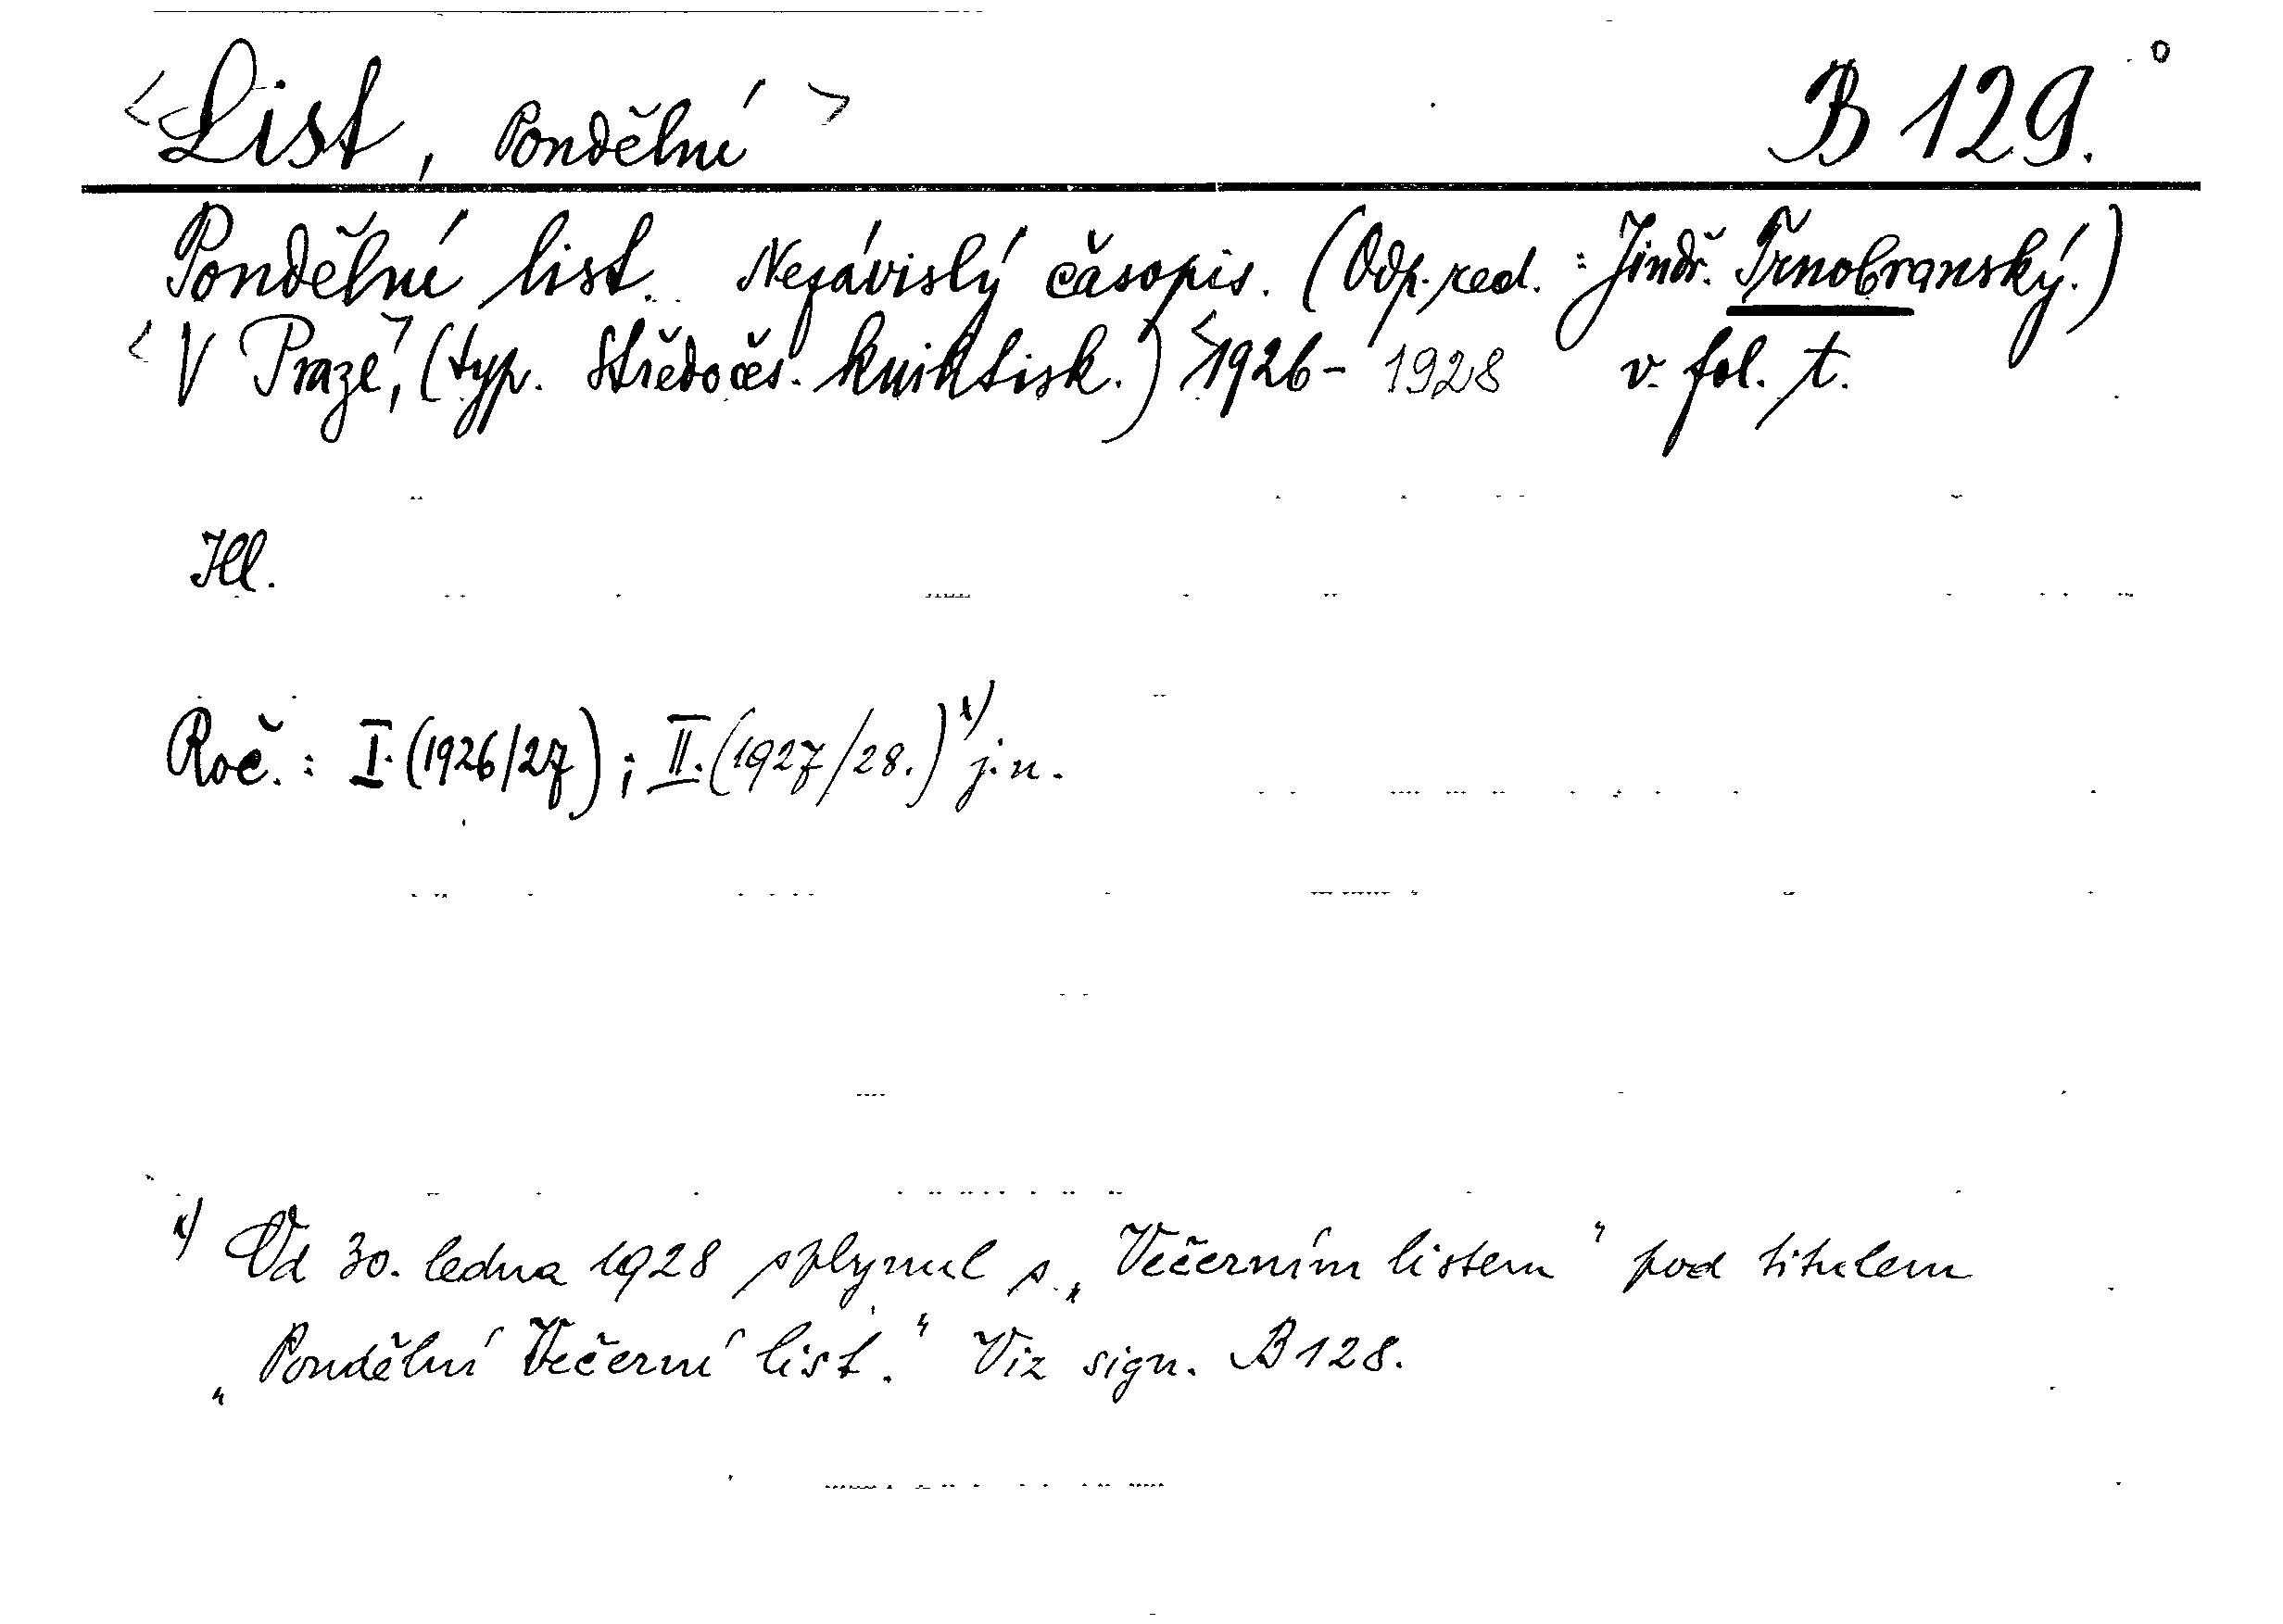 <List, Pondělní> B 129.
Pondělní list. Nezávislý časopis. (Odp. red.: Jindř. Trnobranský.)
<V Praze>, (typ. Středočes. knihtisk.) <1926- 1928 v. fol. t.
Ill.
Roč.: I. (1926/27); II. (1927/28.) x) j. n.
x) Od 30. ledna 1928 splynul s „Večerním listem" pod titulem
„Pondělní Večerní list." Viz sign. B 128.